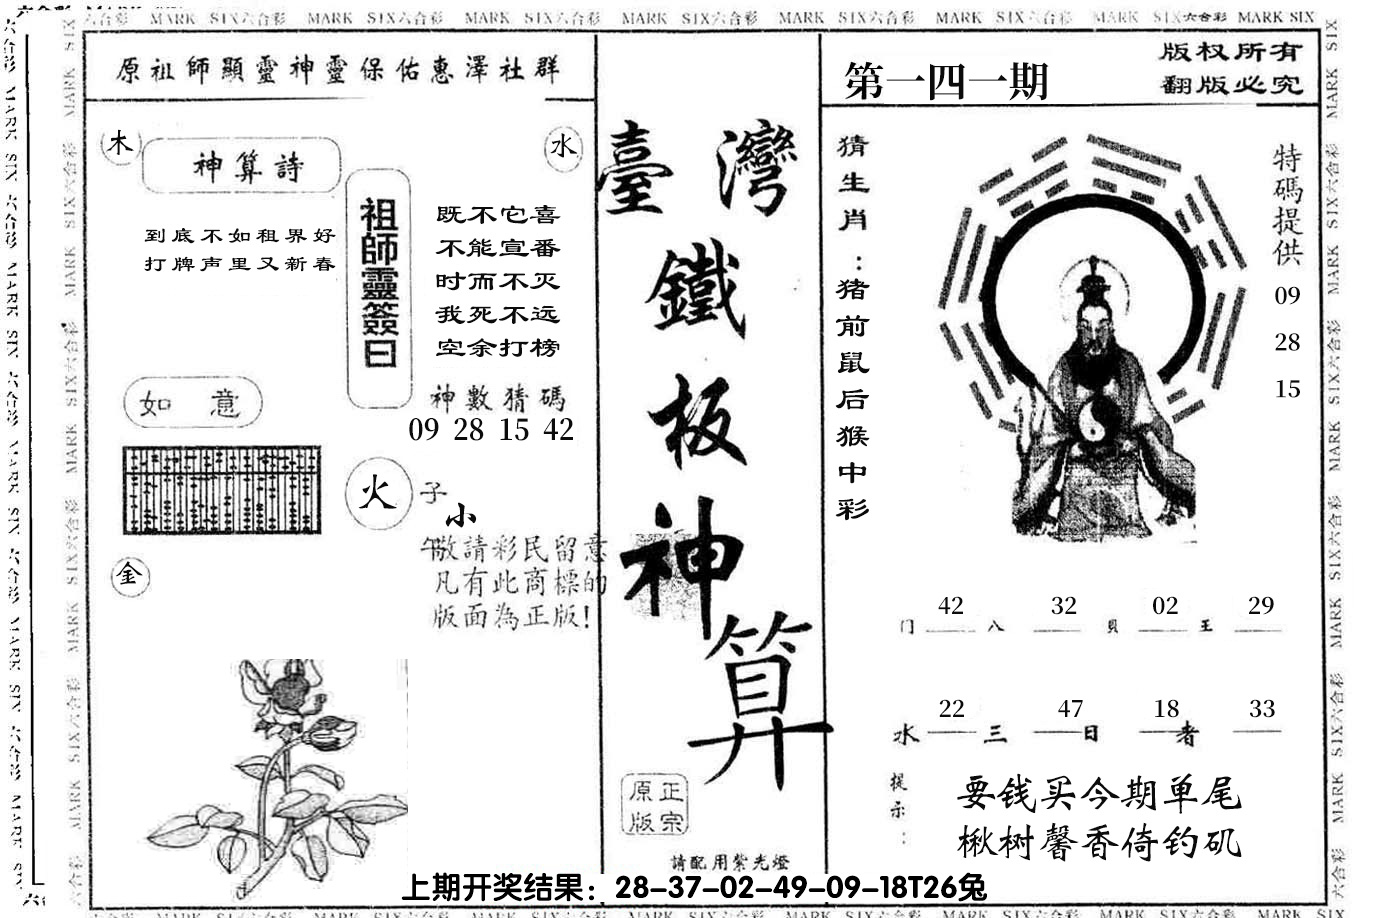 六合彩 MARK SIX六合彩 MARK SIX六合彩 MARK SIX六合彩 MARK SIX六合彩 MARK SIX六合彩 MARK SIX六合彩 MARK SIX六合彩 MARK SIX
原祖師顯靈神靈保佑惠澤社群
木
水
神算詩
到底不如租界好
打牌声里又新春
祖師靈簽曰
既不它喜
不能宣番
时而不灭
我死不远
空余打榜
神數猜碼
09 28 15 42
如 意
火
子
小
午
敬請彩民留意
凡有此商標的
版面為正版!
金
臺灣
鐵
板
神
算
正宗
原版
請配用紫光燈
第一四一期
版权所有
翻版必究
猜生肖:猪前鼠后猴中彩
特碼提供
09
28
15
42 32 02 29
门 八 貝 王
22 47 18 33
水 三 日 者
提示:
要钱买今期单尾
楸树馨香倚钓矶
上期开奖结果：28-37-02-49-09-18T26兔